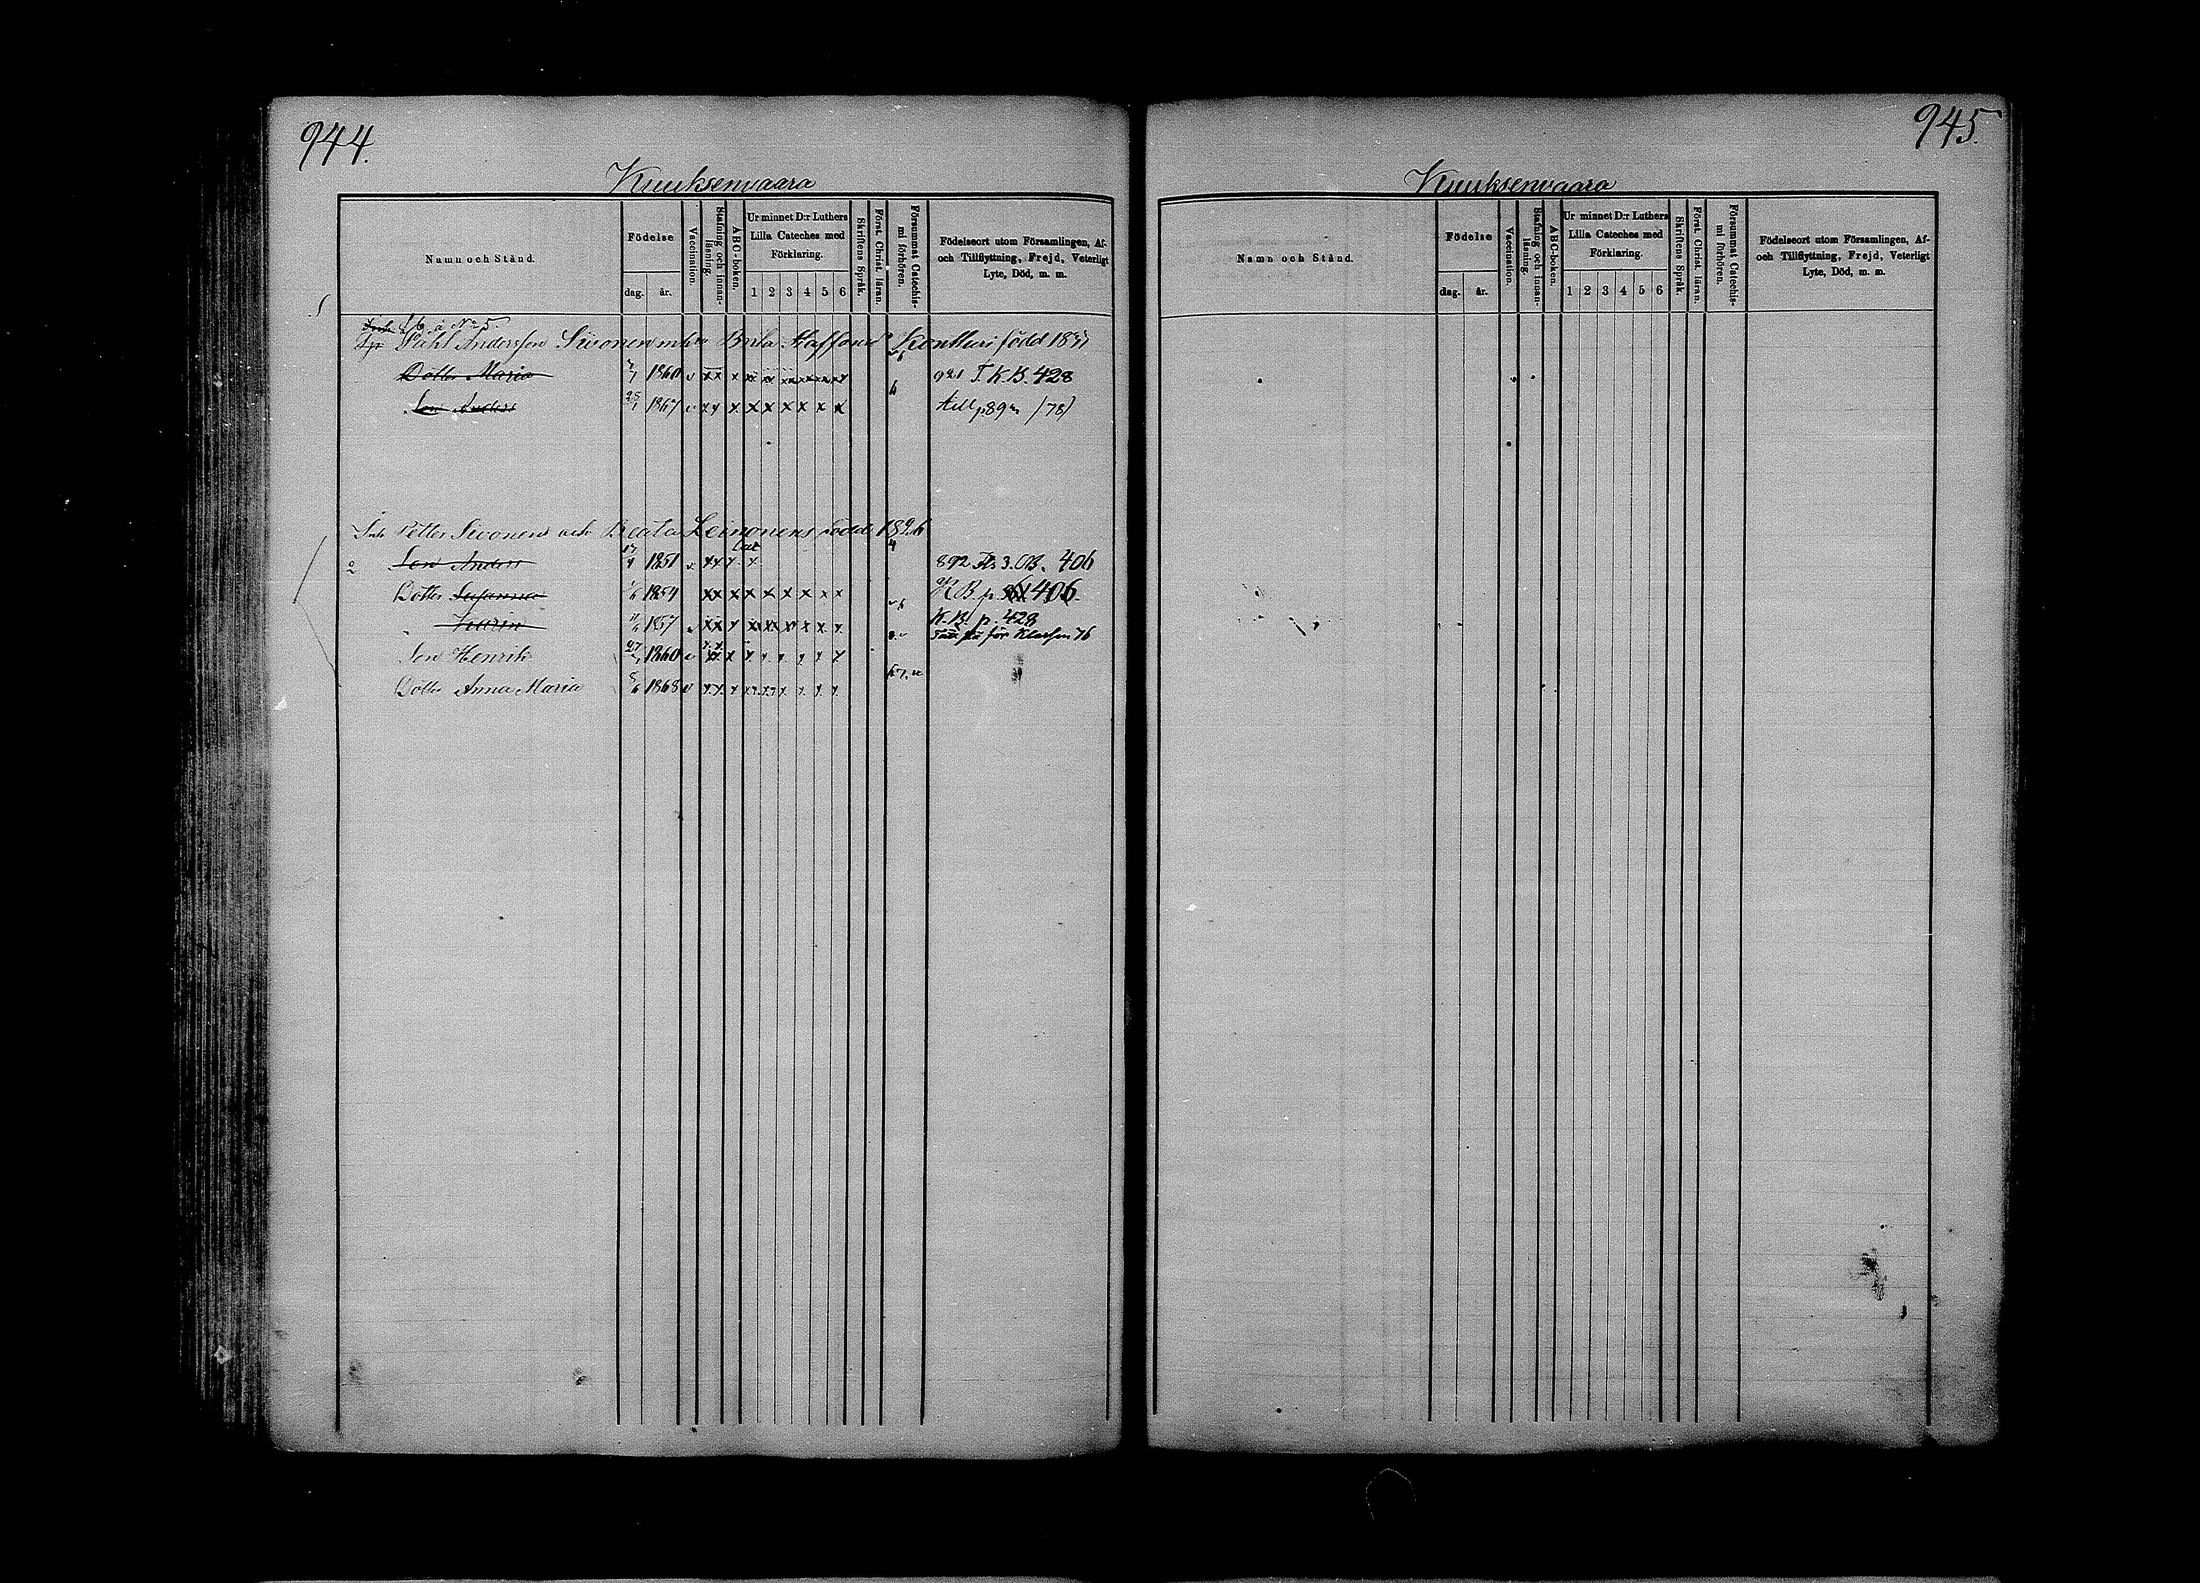 944.
Kuuksenvaara
Namn och Stånd.
Födelse
dag. år.
Vaccination.
Stafning och innanläsning.
ABC-boken.
Ur minnet D:r Luthers
Lilla Cateches med
Förklaring.
1 2 3 4 5 6
Skriftens Språk.
Först. Christ. läran.
Försummat Catechismi förhören.
Födelseort utom Församlingen, Af-
och Tillflyttning, Frejd, Veterligt
Lyte, Död, m. m.
å No 5.
Påhl Andersson Sivonen Brita Staffansd:r Kontturi född
Dotter Maria 1860 v x x x T. K. B. 428
Son Anders 28/1 1867 v x x x x x x x x x /78/
Petter Sivonens och Beata Leinonens född
Son Anders 17/4 1851 v x x x x 892 406
Dotter Susanna 1/6 1854 x x x x x x x x x K. B. p. 406.
Karin 1857 x x x x x x x x K. B. p. 428
för Klassen 76
Son Henrik 1860 v x x x x x x x x x
Dotter Anna Maria 8/6 1868 v x x x x x x x x x
945.
Kuuksenvaara
Namn och Stånd.
Födelse
dag. år.
Vaccination.
Stafning och innanläsning.
ABC-boken.
Ur minnet D:r Luthers
Lilla Cateches med
Förklaring.
1 2 3 4 5 6
Skriftens Språk.
Först. Christ. läran.
Försummat Catechismi förhören.
Födelseort utom Församlingen, Af-
och Tillflyttning, Frejd, Veterligt
Lyte, Död, m. m.